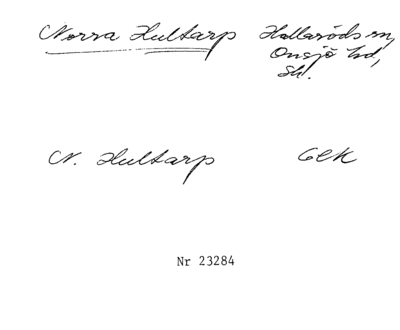 Norra Hultarp Hallaröds sn,
Onsjö hd,
Sk.
N. Hultarp GEK
Nr 23284